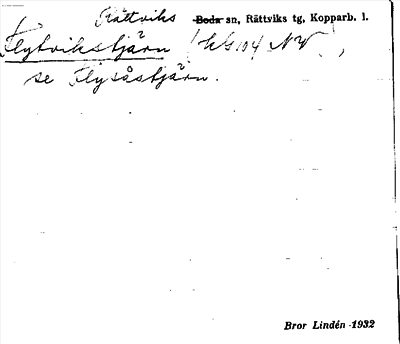 Rättviks Boda sn, Rättviks tg, Kopparb. l.
Flytvikstjärn
se Flysåstjärn.
Bror Lindén 1932